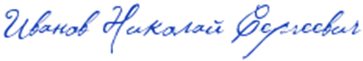 Иванов Николай Сергеевич